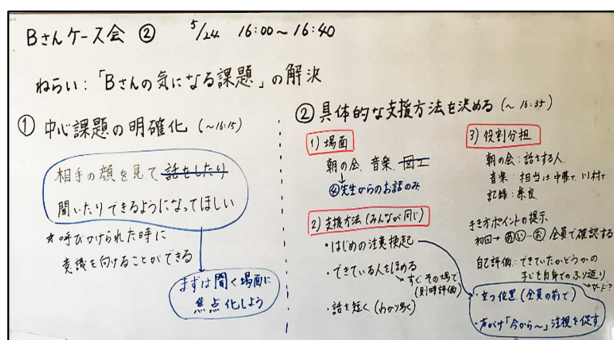 Bさんケース会 ② 5/24 16:00~16:40
ねらい:「Bさんの気になる課題」の解決
① 中心課題の明確化 (~16:15)
相手の顔を見て話をしたり
聞いたりできるようになってほしい
*呼びかけられた時に
意識を向けることができる
まずは聞く場面に
焦点化しよう
② 具体的な支援方法を決める (~16:35)
1) 場面
朝の会、音楽、図工
④先生からのお話のみ
2) 支援方法 (みんなが同じ)
・はじめの注意喚起
・できている人をほめる
すぐその場で
(即時評価)
・話を短く (わかり易く)
3) 役割分担
朝の会:話をする人
音楽:担当は中藤て、川村て
記録:奈良
きき方ポイントの提示
初回→あいーお 全員で確認する
自己評価:できていたかどうかの
子ども自身でのふり返り
カード?
・立つ位置 (全員の前で)
・声がけ「今から~」注視を促す